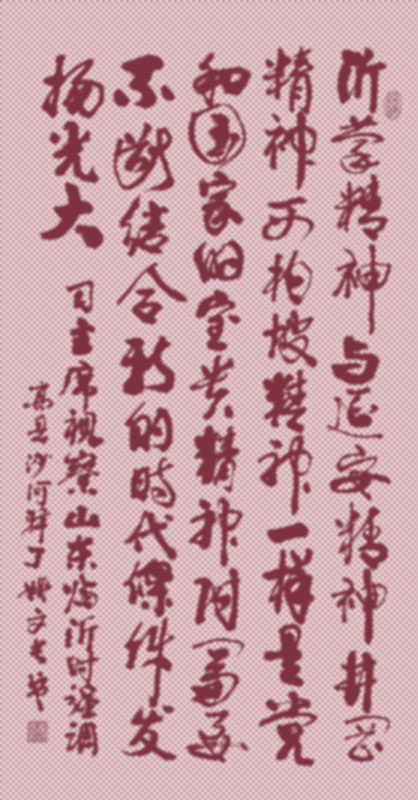 沂蒙精神与延安精神井冈
精神西柏坡精神一样是党
和国家的宝贵精神财富要
不断结合新的时代條件发
扬光大
习主席视察山东临沂时强调